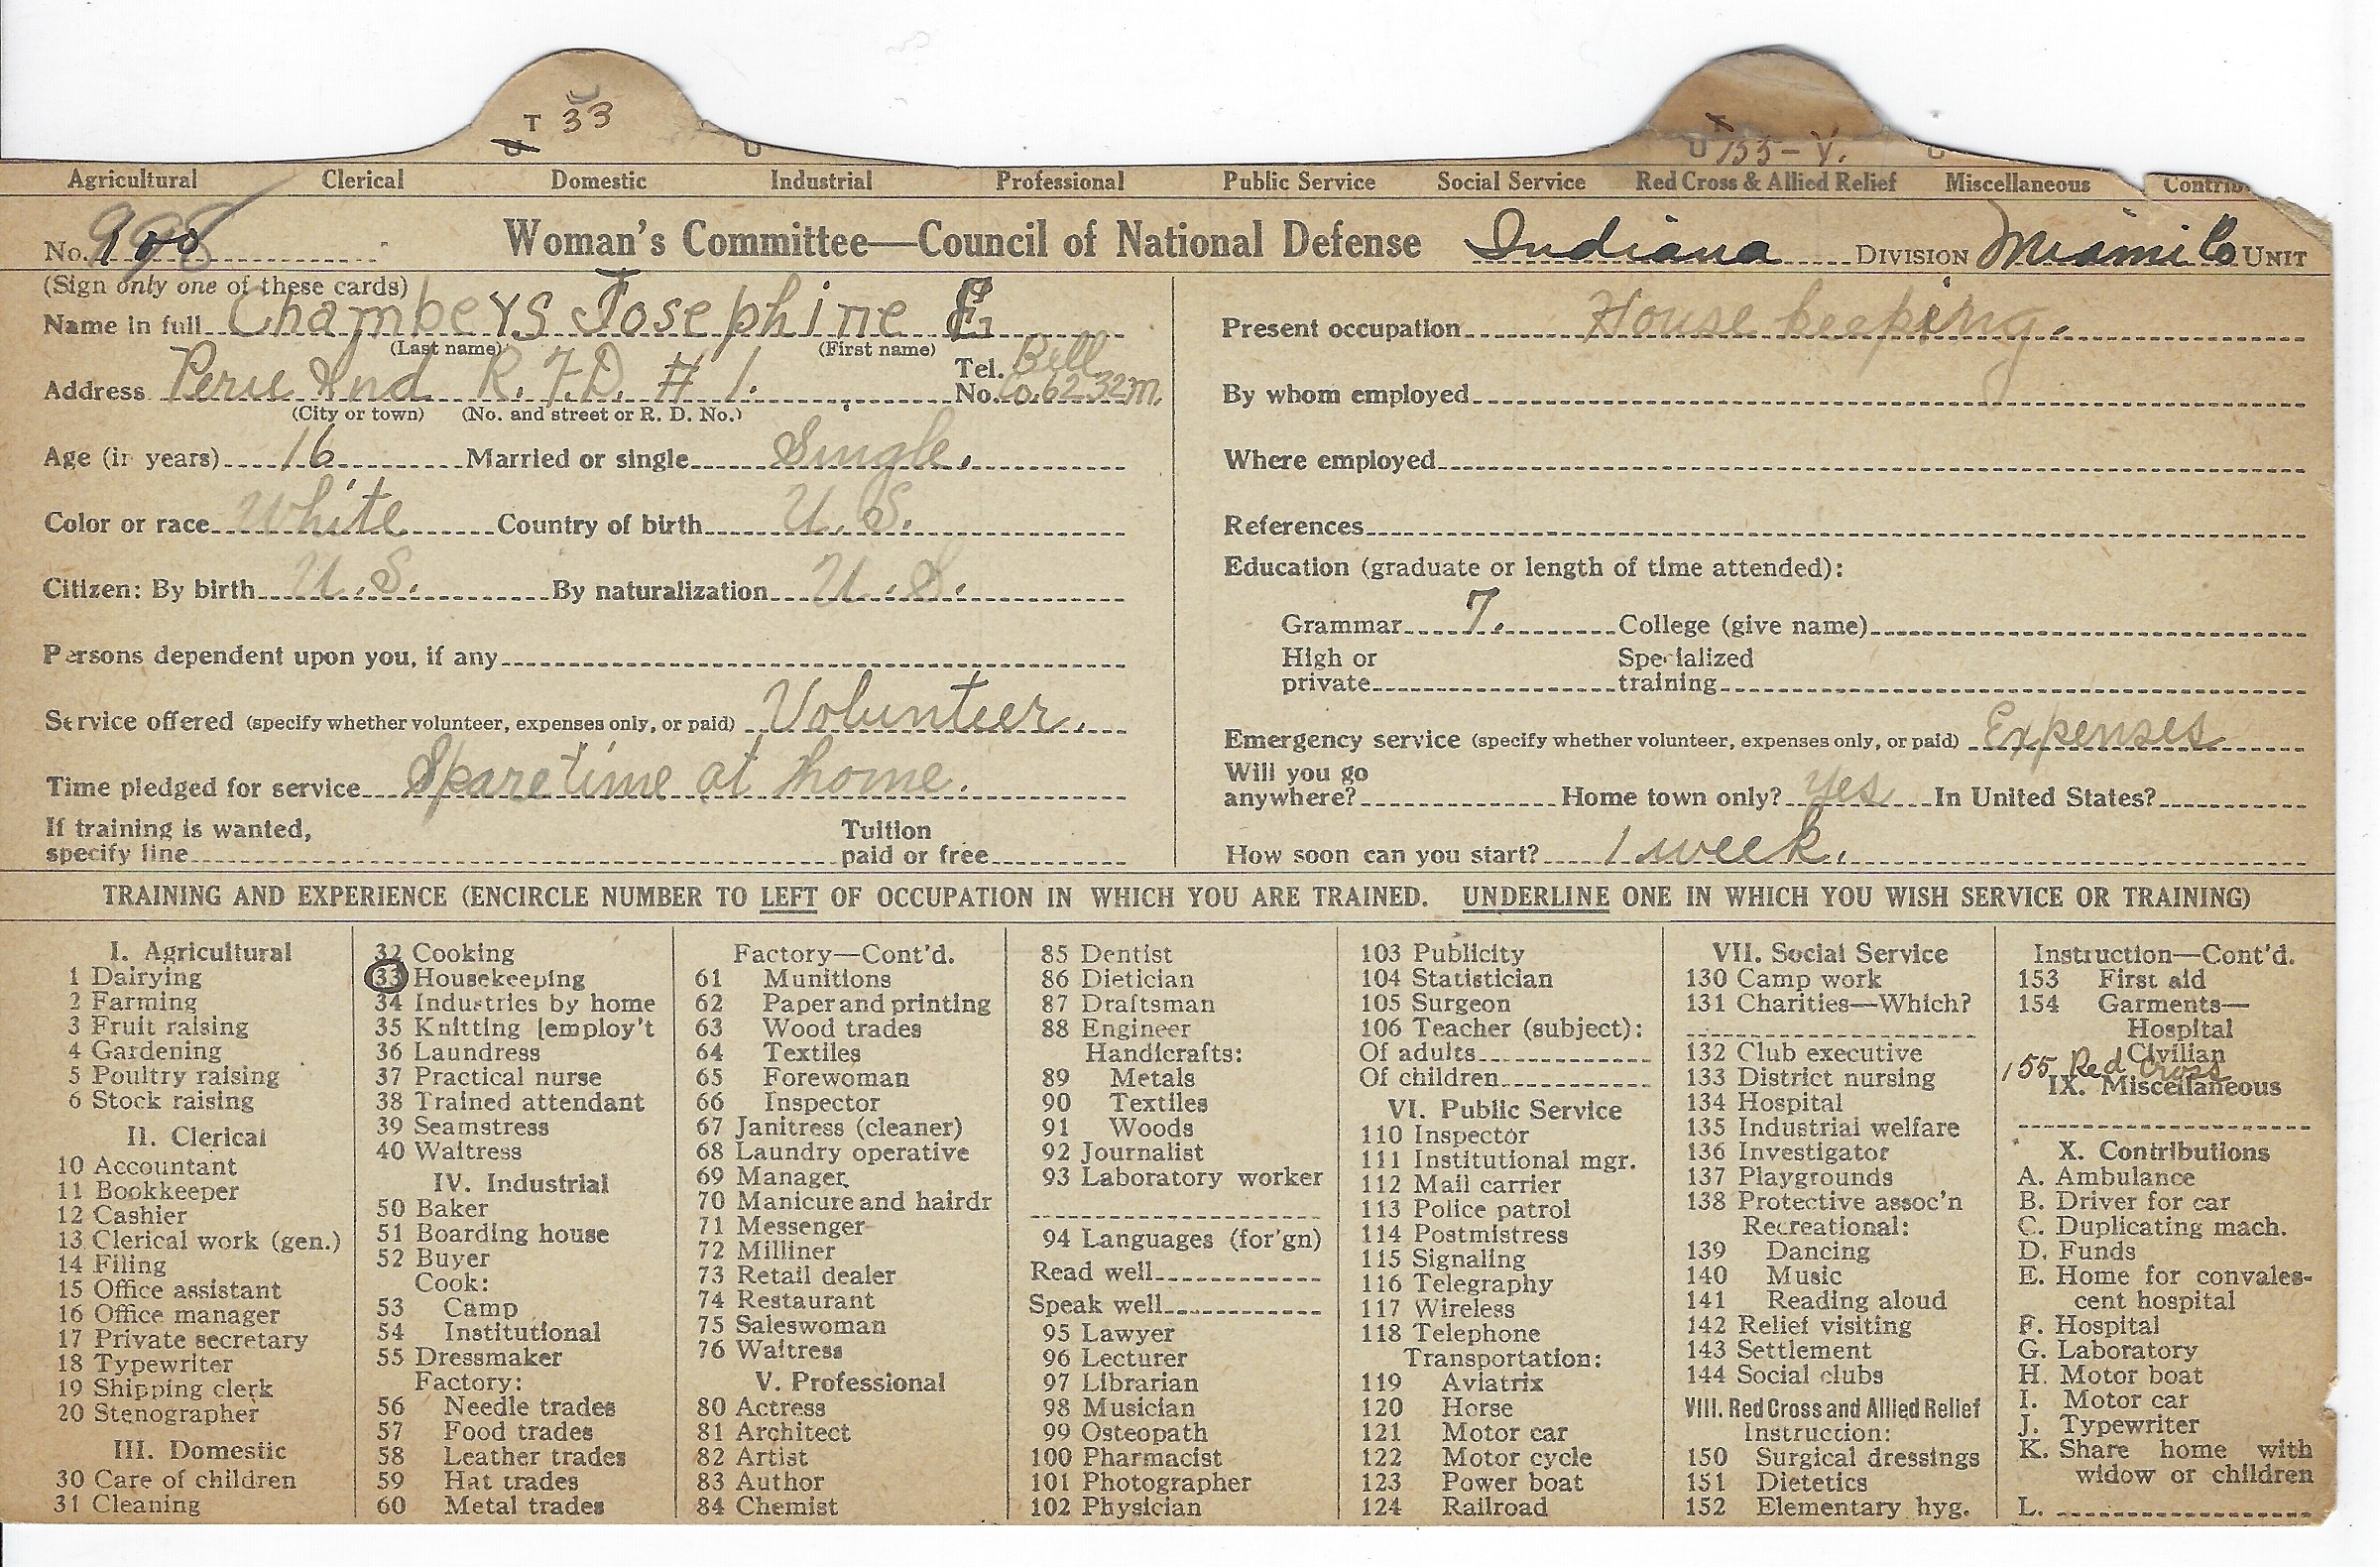 T 33
155-V.
Agricultural Clerical Domestic Industrial Professional Public Service Social Service Red Cross & Allied Relief Miscellaneous Contrib
No. 998 100 Woman's Committee—Council of National Defense Indiana DIVISION Miami Co UNIT
(Sign only one of these cards)
Name in full Chambers Josephine E
(Last name) (First name)
Address Peru Ind. R.F.D. # 1. Tel. No. Bell Co. 6232m.
(City or town) (No. and street or R. D. No.)
Age (in years) 16 Married or single Single.
Color or race White Country of birth U.S.
Citizen: By birth U.S. By naturalization U.S.
Persons dependent upon you, if any
Service offered (specify whether volunteer, expenses only, or paid) Volunteer.
Time pledged for service Spare time at home.
If training is wanted, specify line Tuition paid or free
Present occupation House keeping.
By whom employed
Where employed
References
Education (graduate or length of time attended):
Grammar 7. College (give name)
High or private Specialized training
Emergency service (specify whether volunteer, expenses only, or paid) Expenses
Will you go anywhere? Home town only? yes In United States?
How soon can you start? 1 week.
TRAINING AND EXPERIENCE (ENCIRCLE NUMBER TO LEFT OF OCCUPATION IN WHICH YOU ARE TRAINED. UNDERLINE ONE IN WHICH YOU WISH SERVICE OR TRAINING)
I. Agricultural
1 Dairying
2 Farming
3 Fruit raising
4 Gardening
5 Poultry raising
6 Stock raising
II. Clerical
10 Accountant
11 Bookkeeper
12 Cashier
13 Clerical work (gen.)
14 Filing
15 Office assistant
16 Office manager
17 Private secretary
18 Typewriter
19 Shipping clerk
20 Stenographer
III. Domestic
30 Care of children
31 Cleaning
32 Cooking
33 Housekeeping
34 Industries by home
35 Knitting [employ't
36 Laundress
37 Practical nurse
38 Trained attendant
39 Seamstress
40 Waitress
IV. Industrial
50 Baker
51 Boarding house
52 Buyer
Cook:
53 Camp
54 Institutional
55 Dressmaker
Factory:
56 Needle trades
57 Food trades
58 Leather trades
59 Hat trades
60 Metal trades
Factory—Cont'd.
61 Munitions
62 Paper and printing
63 Wood trades
64 Textiles
65 Forewoman
66 Inspector
67 Janitress (cleaner)
68 Laundry operative
69 Manager
70 Manicure and hairdr
71 Messenger
72 Milliner
73 Retail dealer
74 Restaurant
75 Saleswoman
76 Waitress
V. Professional
80 Actress
81 Architect
82 Artist
83 Author
84 Chemist
85 Dentist
86 Dietician
87 Draftsman
88 Engineer
Handicrafts:
89 Metals
90 Textiles
91 Woods
92 Journalist
93 Laboratory worker
94 Languages (for'gn)
Read well
Speak well
95 Lawyer
96 Lecturer
97 Librarian
98 Musician
99 Osteopath
100 Pharmacist
101 Photographer
102 Physician
103 Publicity
104 Statistician
105 Surgeon
106 Teacher (subject):
Of adults
Of children
VI. Public Service
110 Inspector
111 Institutional mgr.
112 Mail carrier
113 Police patrol
114 Postmistress
115 Signaling
116 Telegraphy
117 Wireless
118 Telephone
Transportation:
119 Aviatrix
120 Horse
121 Motor car
122 Motor cycle
123 Power boat
124 Railroad
VII. Social Service
130 Camp work
131 Charities—Which?
132 Club executive
133 District nursing
134 Hospital
135 Industrial welfare
136 Investigator
137 Playgrounds
138 Protective assoc'n
Recreational:
139 Dancing
140 Music
141 Reading aloud
142 Relief visiting
143 Settlement
144 Social clubs
VIII. Red Cross and Allied Relief
Instruction:
150 Surgical dressings
151 Dietetics
152 Elementary hyg.
Instruction—Cont'd.
153 First aid
154 Garments—
Hospital
Civilian
155 Red Cross
IX. Miscellaneous
X. Contributions
A. Ambulance
B. Driver for car
C. Duplicating mach.
D. Funds
E. Home for convales-
cent hospital
F. Hospital
G. Laboratory
H. Motor boat
I. Motor car
J. Typewriter
K. Share home with
widow or children
L.